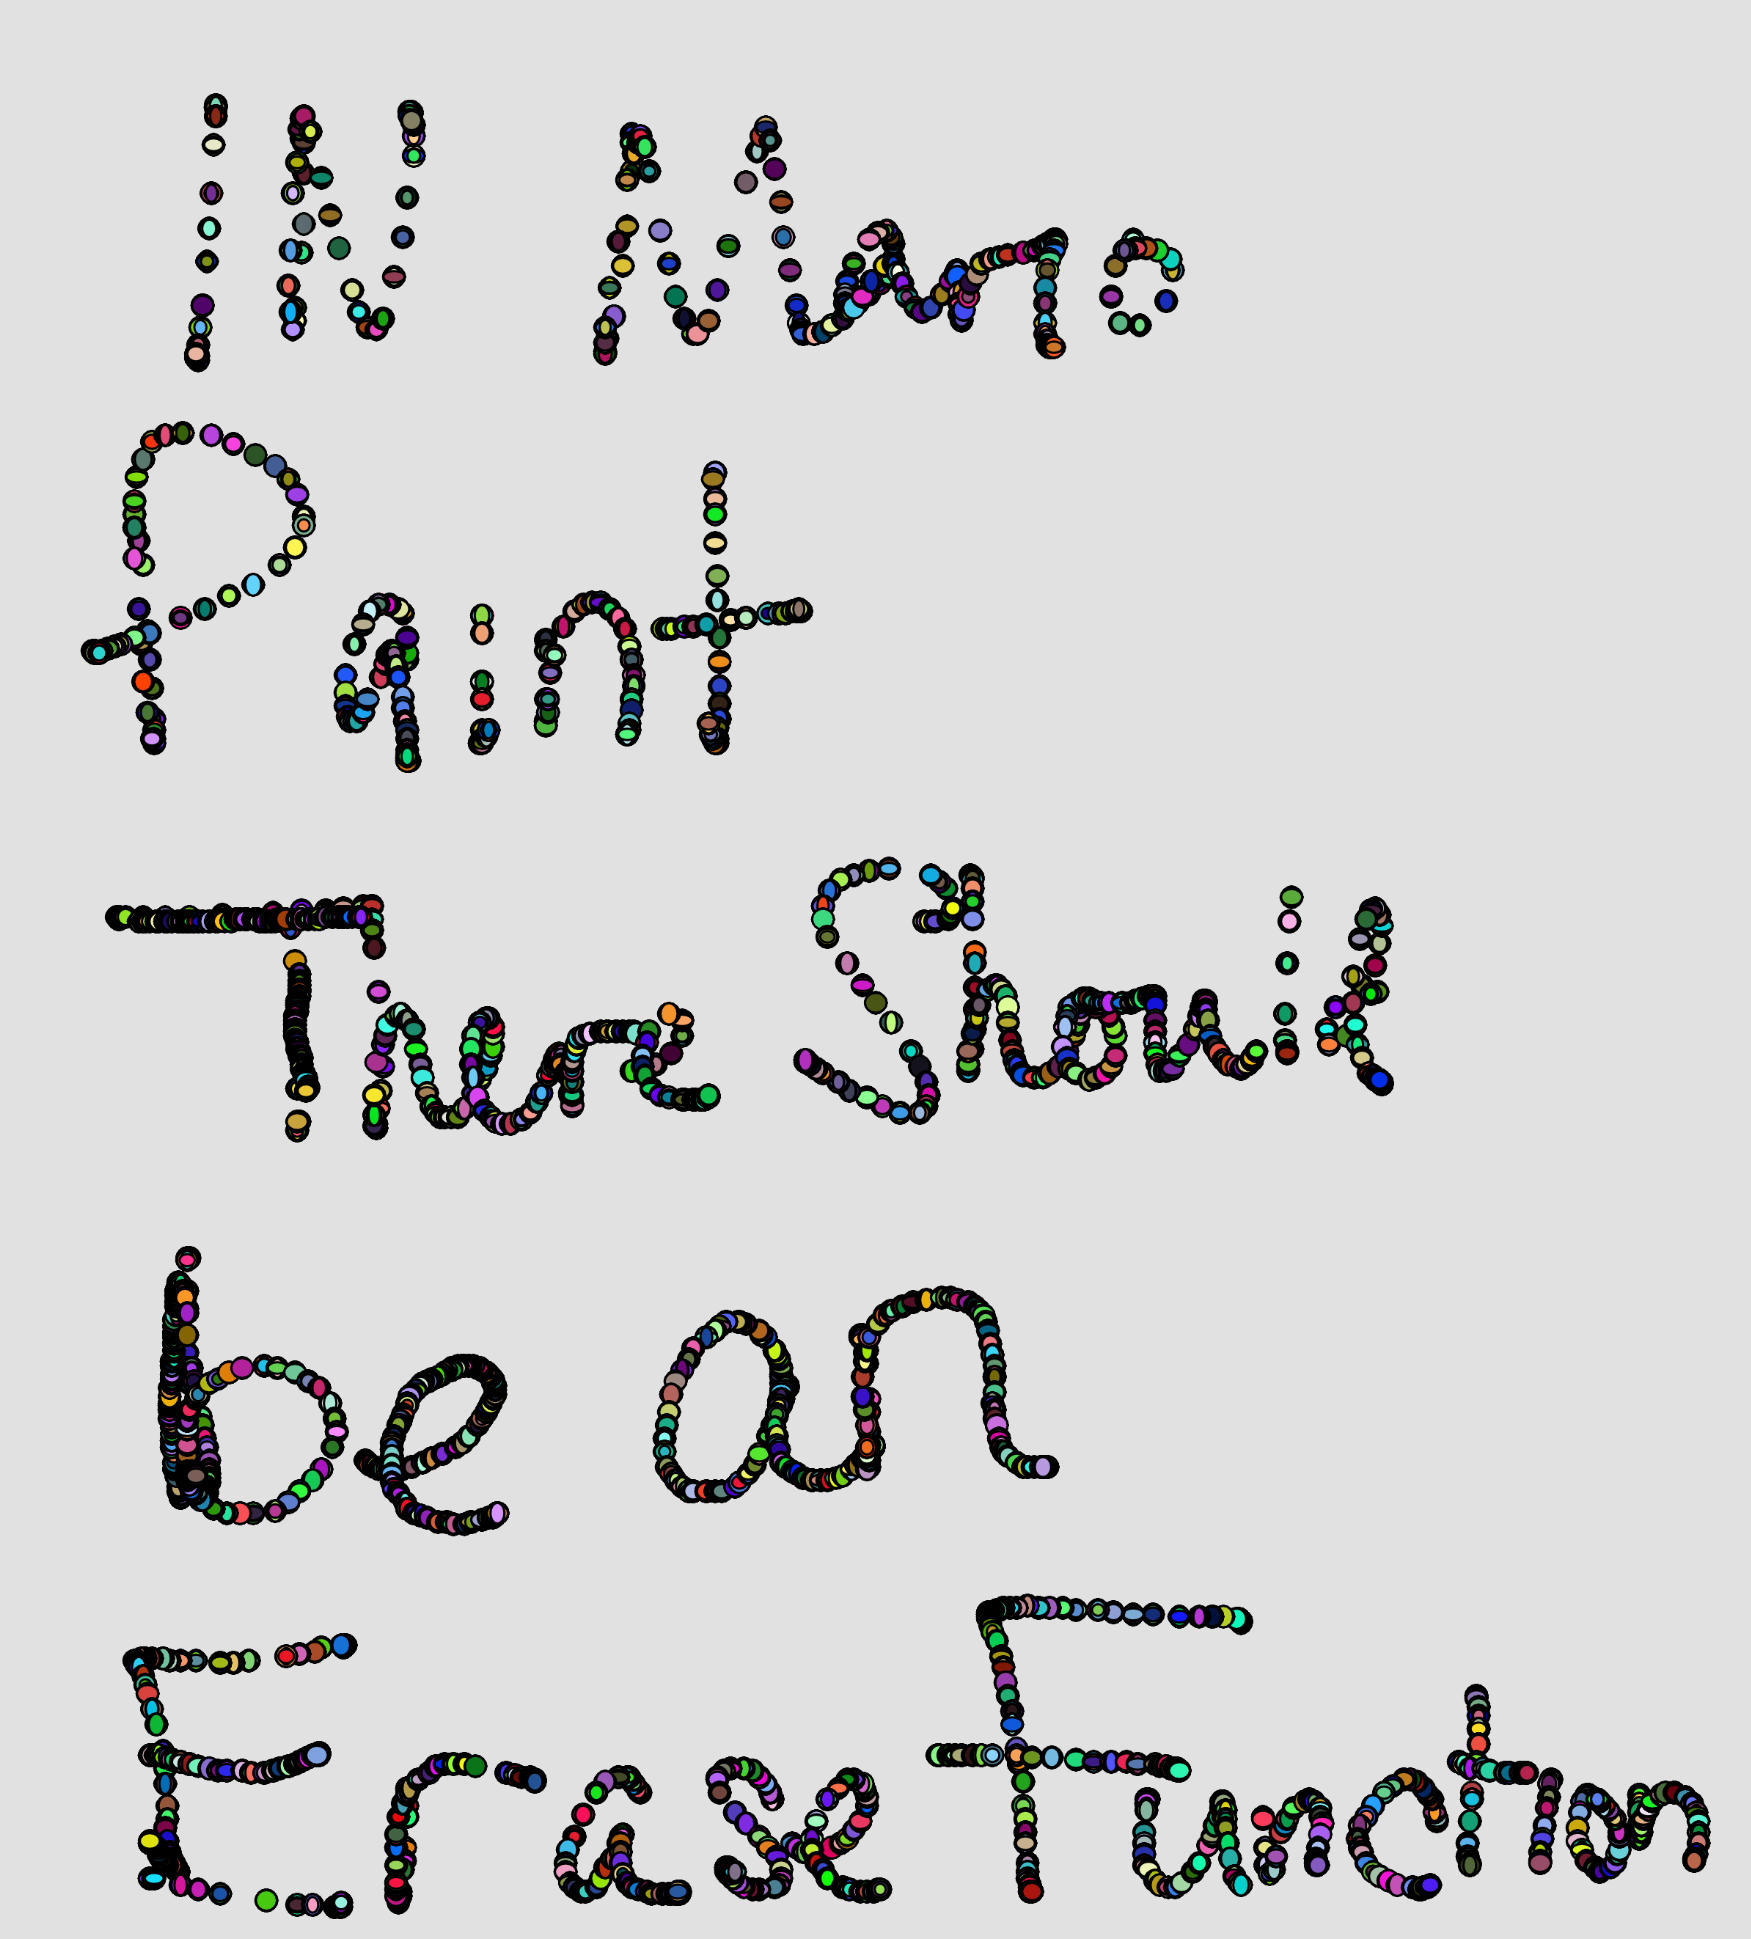 IN Mano
Paint
There Should
be an
Erase Function